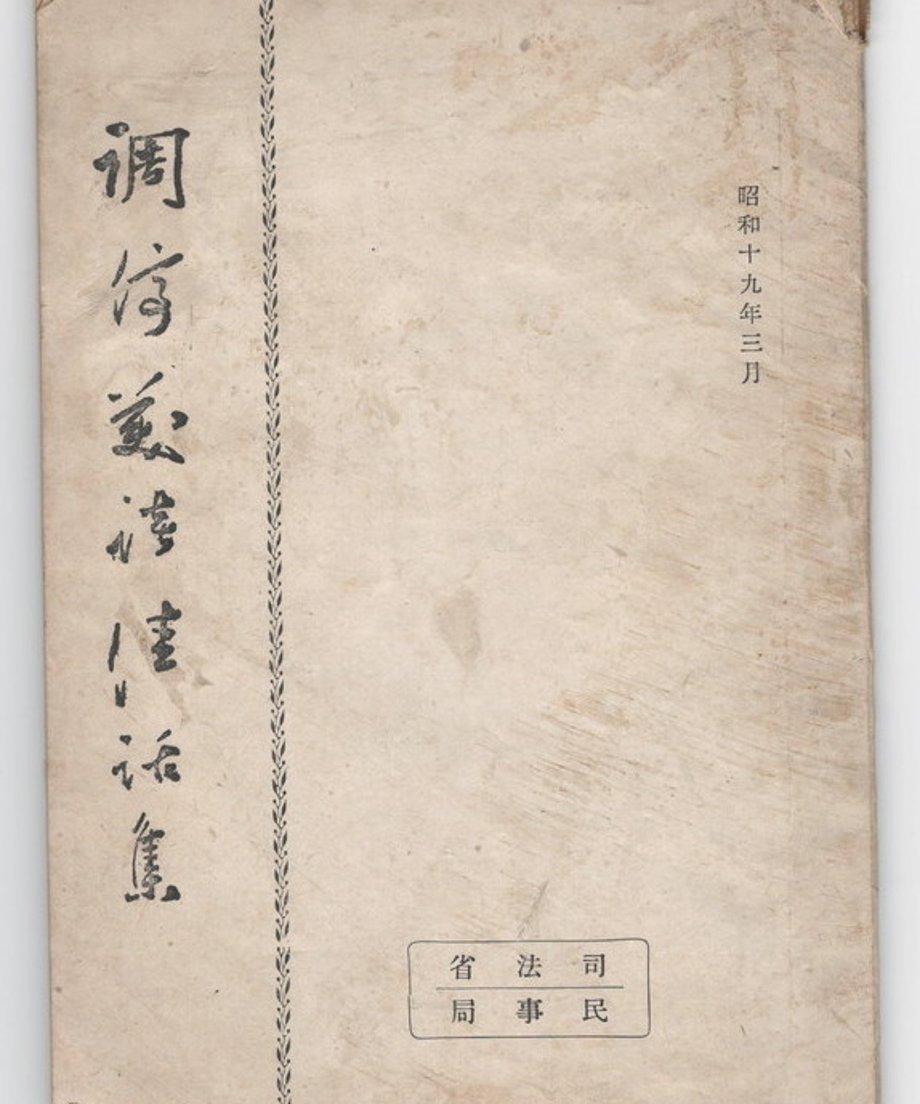 昭和十九年三月
調停美談佳話集
司法省
民事局